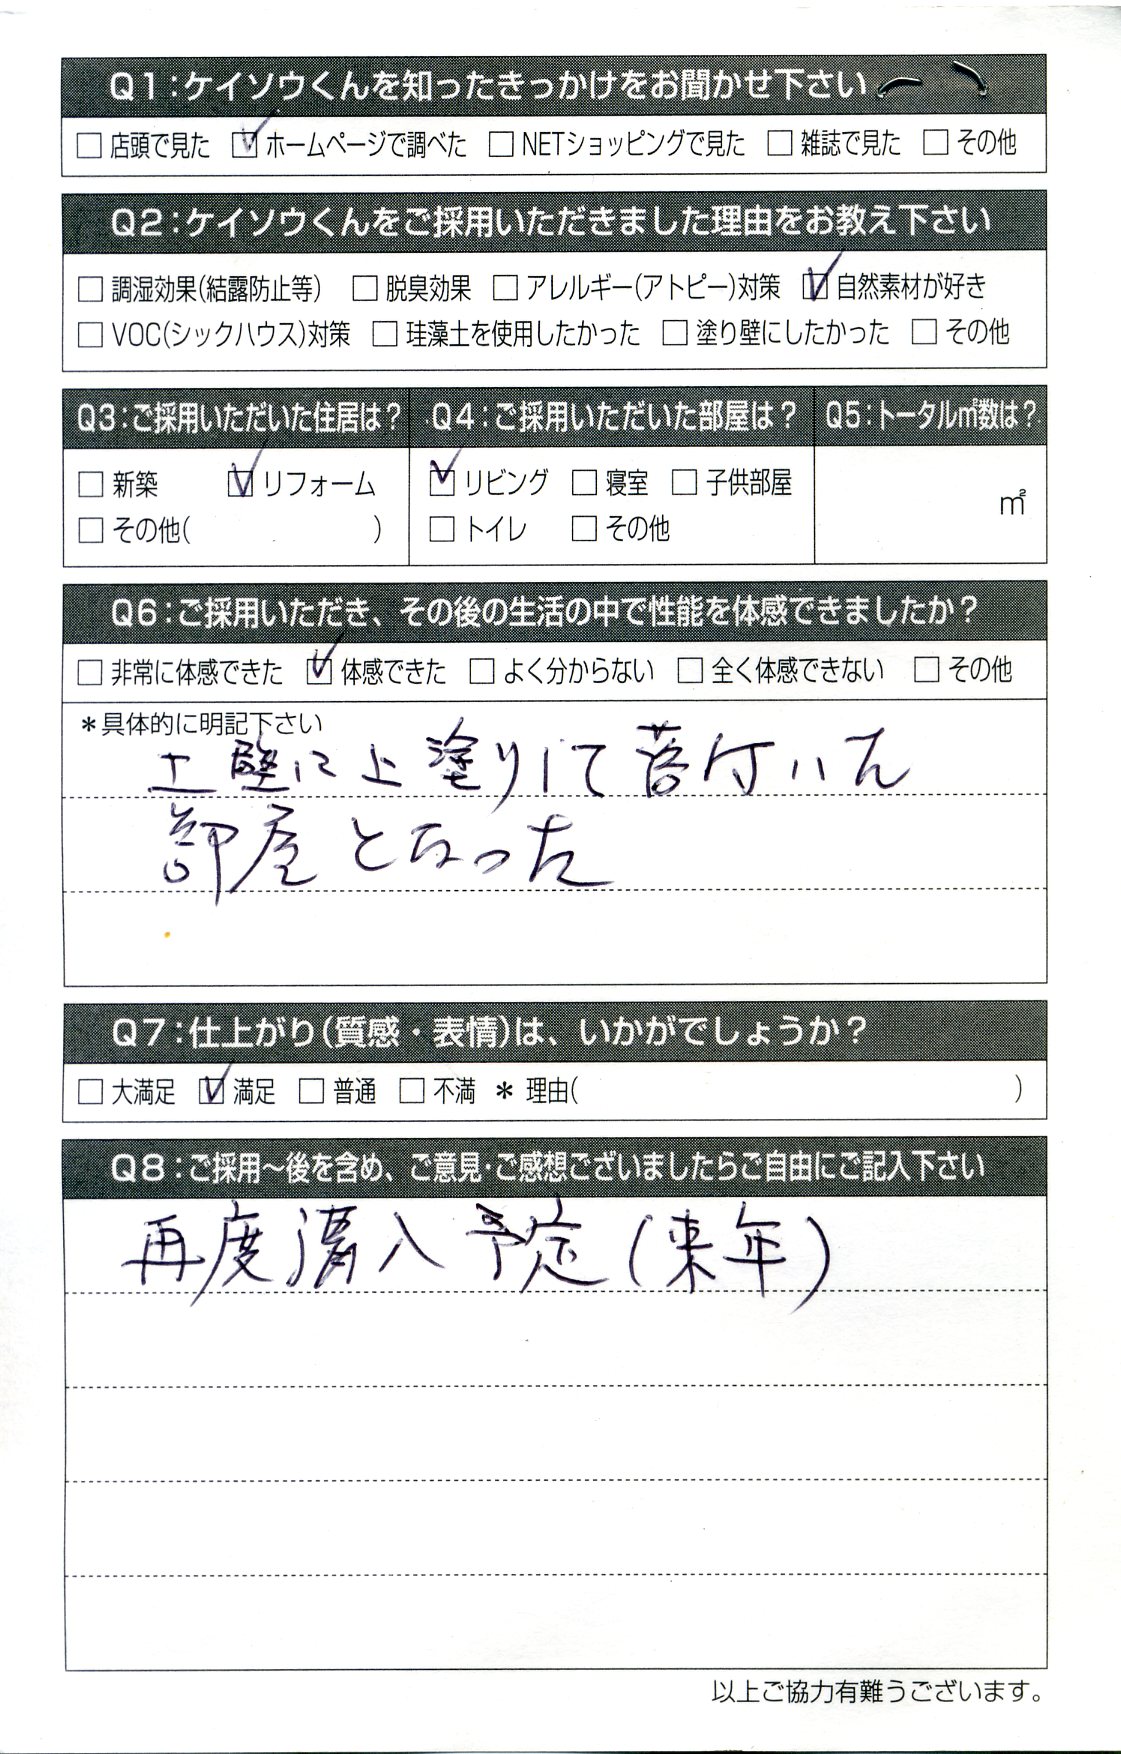 Q1:ケイソウくんを知ったきっかけをお聞かせ下さい
□ 店頭で見た ☑ ホームページで調べた □ NETショッピングで見た □ 雑誌で見た □ その他
Q2:ケイソウくんをご採用いただきました理由をお教え下さい
□ 調湿効果(結露防止等) □ 脱臭効果 □ アレルギー(アトピー)対策 ☑ 自然素材が好き
□ VOC(シックハウス)対策 □ 珪藻土を使用したかった □ 塗り壁にしたかった □ その他
Q3:ご採用いただいた住居は? Q4:ご採用いただいた部屋は? Q5:トータル㎡数は?
□ 新築 ☑ リフォーム ☑ リビング □ 寝室 □ 子供部屋 ㎡
□ その他( ) □ トイレ □ その他
Q6:ご採用いただき、その後の生活の中で性能を体感できましたか?
□ 非常に体感できた ☑ 体感できた □ よく分からない □ 全く体感できない □ その他
*具体的に明記下さい
土壁に上塗りして落付いた
部屋となった
Q7:仕上がり(質感・表情)は、いかがでしょうか?
□ 大満足 ☑ 満足 □ 普通 □ 不満 * 理由( )
Q8:ご採用~後を含め、ご意見・ご感想ございましたらご自由にご記入下さい
再度購入予定(来年)
以上ご協力有難うございます。